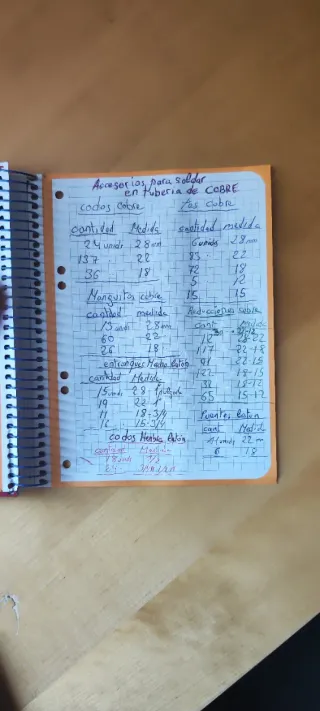 Accesorios para soldar
en tuberia de COBRE
codos cobre
cantidad Medida
24 unids 28 mm
137 22
36 18
Manguitos cobre
cantidad medida
19 unids 28 mm
60 22
26 18
entronques Macho Laton
cantidad Medida
15 unids 28
19 22
11 18-3/4
16 15-3/4
codos Hembra Laton
cantidad Medida
18 unds
24
Tes cobre
cantidad medida
6 unids 28 mm
83 22
72 18
5 12
15 15
Reducciones cobre
cant Medida
12 28-22
117 22-18
91 22-15
122 18-15
32 15-12
65 15-12
Puentes Laton
cant Medid
22 m
6 18